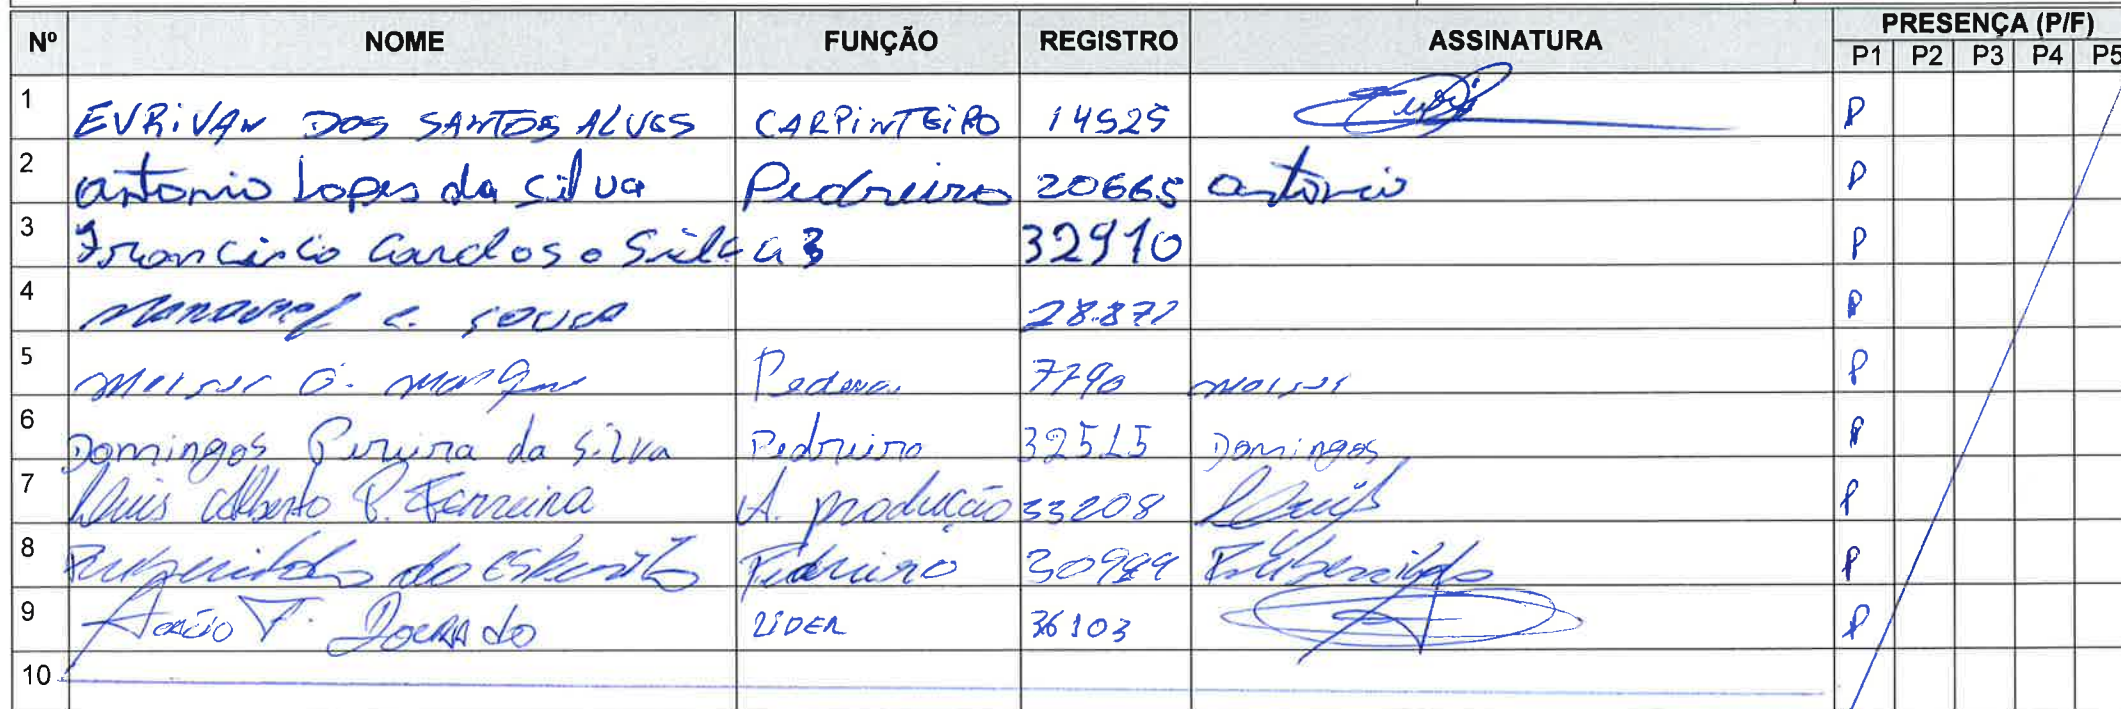 Nº NOME FUNÇÃO REGISTRO ASSINATURA PRESENÇA (P/F)
P1 P2 P3 P4 P5
1 EVRIVAN DOS SANTOS ALVES CARPINTEIRO 14525 P
2 antonio Lopes da silva Pedreiro 20665 antonio P
3 Francisco Cardoso Silva 3 32910 P
4 c. sousa 28.871 P
5 7790 moises P
6 Domingos Pereira da silva Pedreiro 32515 Domingos P
7 Luis Alberto P. Ferreira A. produção 33208 Luis P
8 do Pedreiro P
9 Acácio F. Dourado LÍDER 36103 P
10